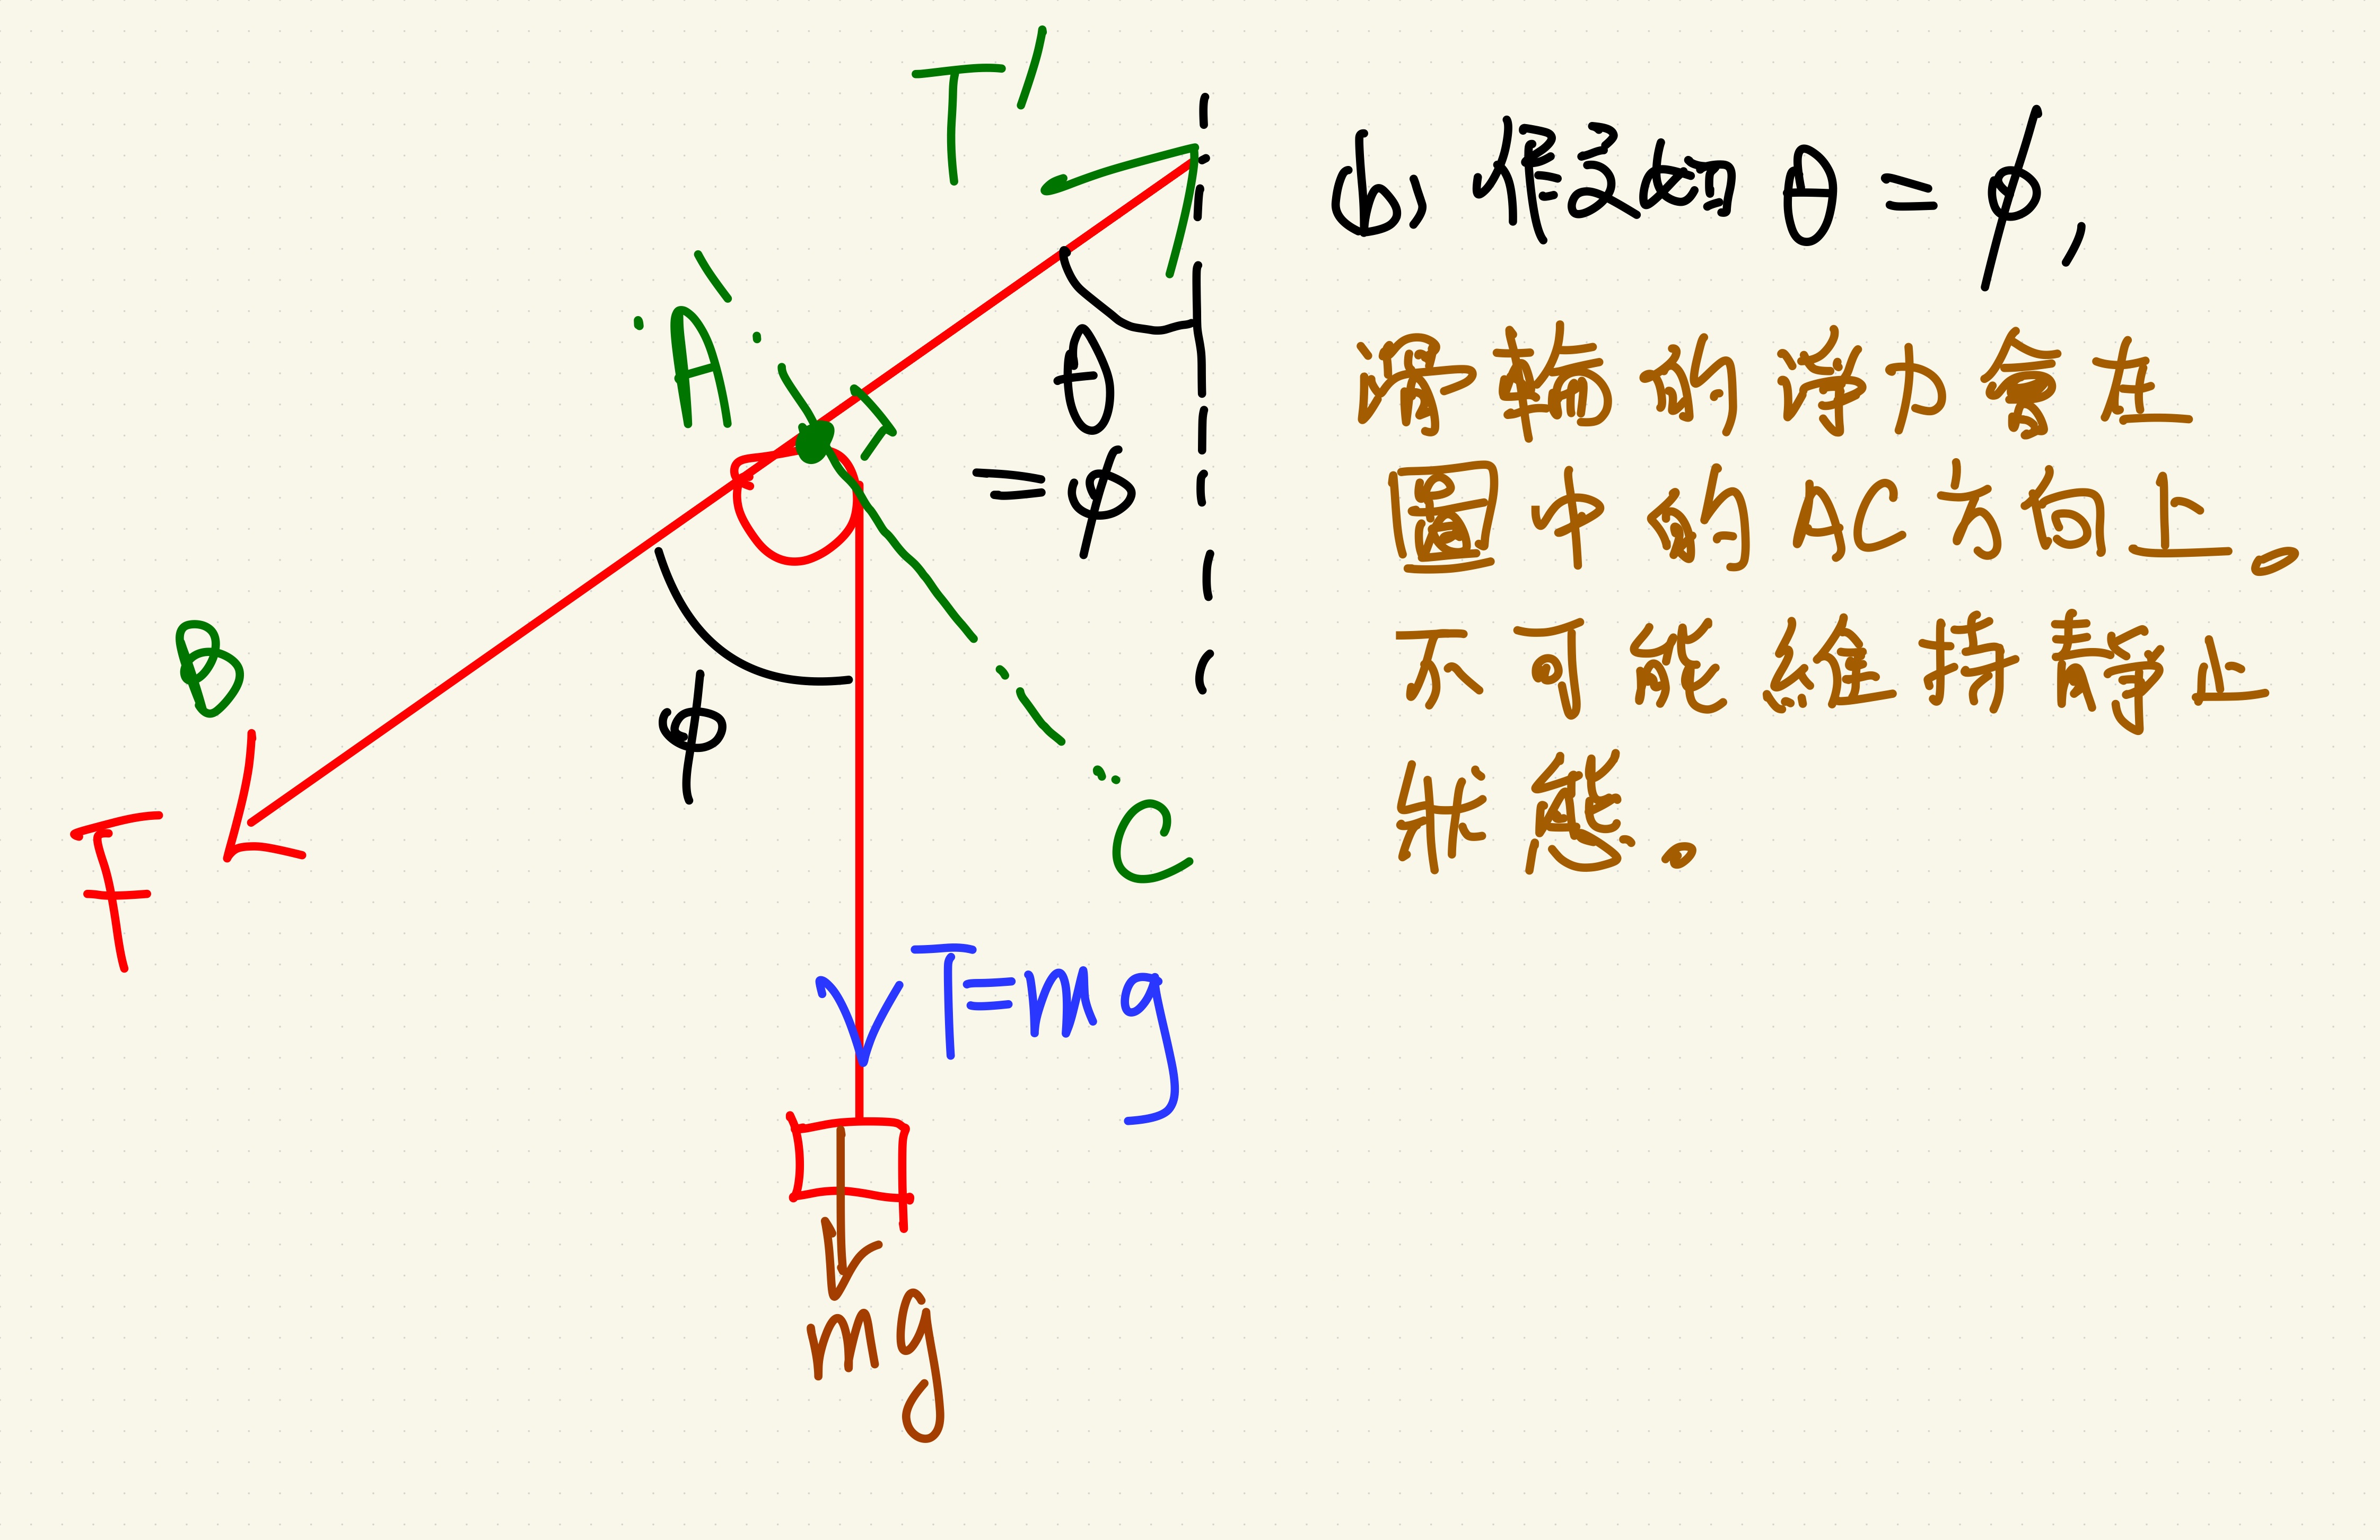 T'
A
θ
= φ
B
φ
F
C
T=mg
mg
b, 假設如 θ = φ,
滑輪的淨力會在
圖中的AC方向上。
不可能維持靜止
狀態。